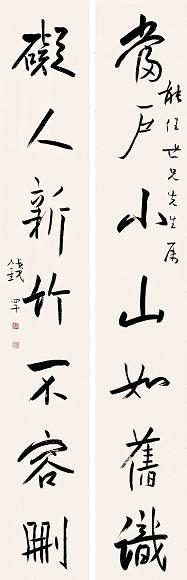 當戶小山如舊識
能任世兄先生屬
礙人新竹不容刪
錢罕